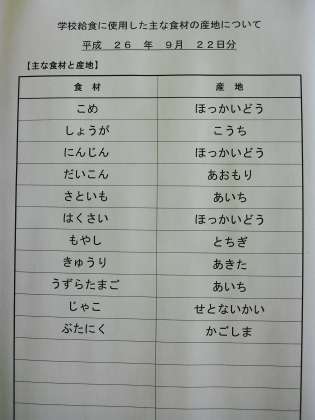 学校給食に使用した主な食材の産地について
平成 ２６ 年 ９月 ２２日分
【主な食材と産地】
食 材 産 地
こめ ほっかいどう
しょうが こうち
にんじん ほっかいどう
だいこん あおもり
さといも あいち
はくさい ほっかいどう
もやし とちぎ
きゅうり あきた
うずらたまご あいち
じゃこ せとないかい
ぶたにく かごしま